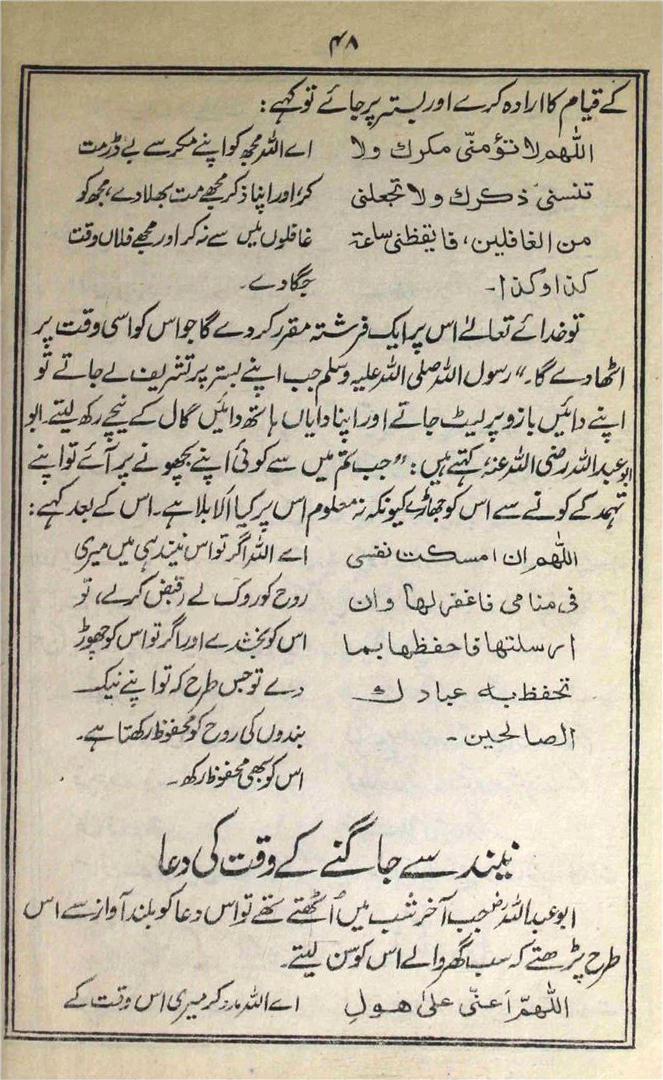 ۴۸
کے قیام کا ارادہ کرے اور بستر پر جائے تو کہے:
اللهم لا تؤمنّی مکرك ولا
تنسنی ذکرك ولا تجعلنی
من الغافلین، فایقظنی ساعۃ
کذا وکذا۔
اے اللہ مجھ کو اپنے مکر سے بے ڈر مت
کر، اور اپنا ذکر مجھے مت بھلا دے، مجھ کو
غافلوں میں سے نہ کر اور مجھے فلاں وقت
جگا دے۔
تو خدائے تعالےٰ اس پر ایک فرشتہ مقرر کر دے گا جو اس کو اسی وقت پر
اٹھا دے گا۔" رسول اللہ صلی اللہ علیہ وسلم جب اپنے بستر پر تشریف لے جاتے تو
اپنے دائیں بازو پر لیٹ جاتے اور اپنا دایاں ہاتھ دائیں گال کے نیچے رکھ لیتے۔ ابو
ابو عبد اللہ رضی اللہ عنہ، کہتے ہیں: "جب تم میں سے کوئی اپنے بچھونے پر آئے تو اپنے
تہمد کے کونے سے اس کو جھاڑے کیونکہ نہ معلوم اس پر کیا اَلا بلا ہے۔ اس کے بعد کہے:
اللهم ان امسکت نفسی
فی منامی فاغفر لها وان
ارسلتها فاحفظها بما
تحفظ به عبادك
الصالحین۔
اے اللہ اگر تو اس نیند ہی میں میری
روح کو روک لے قبض کر لے، تو
اس کو بخش دے اور اگر تو اس کو چھوڑ
دے تو جس طرح کہ تو اپنے نیک
بندوں کی روح کو محفوظ رکھتا ہے۔
اس کو بھی محفوظ رکھ۔
نیند سے جاگنے کے وقت کی دعا
ابو عبد اللہ رضؓ جب آخر شب میں اُٹھتے تھے تو اس دعا کو بلند آواز سے اس
طرح پڑھتے کہ سب گھر والے اس کو سن لیتے۔
اللهمّ اَعنّی علیٰ هولِ
اے اللہ مدد کر میری اس وقت کے